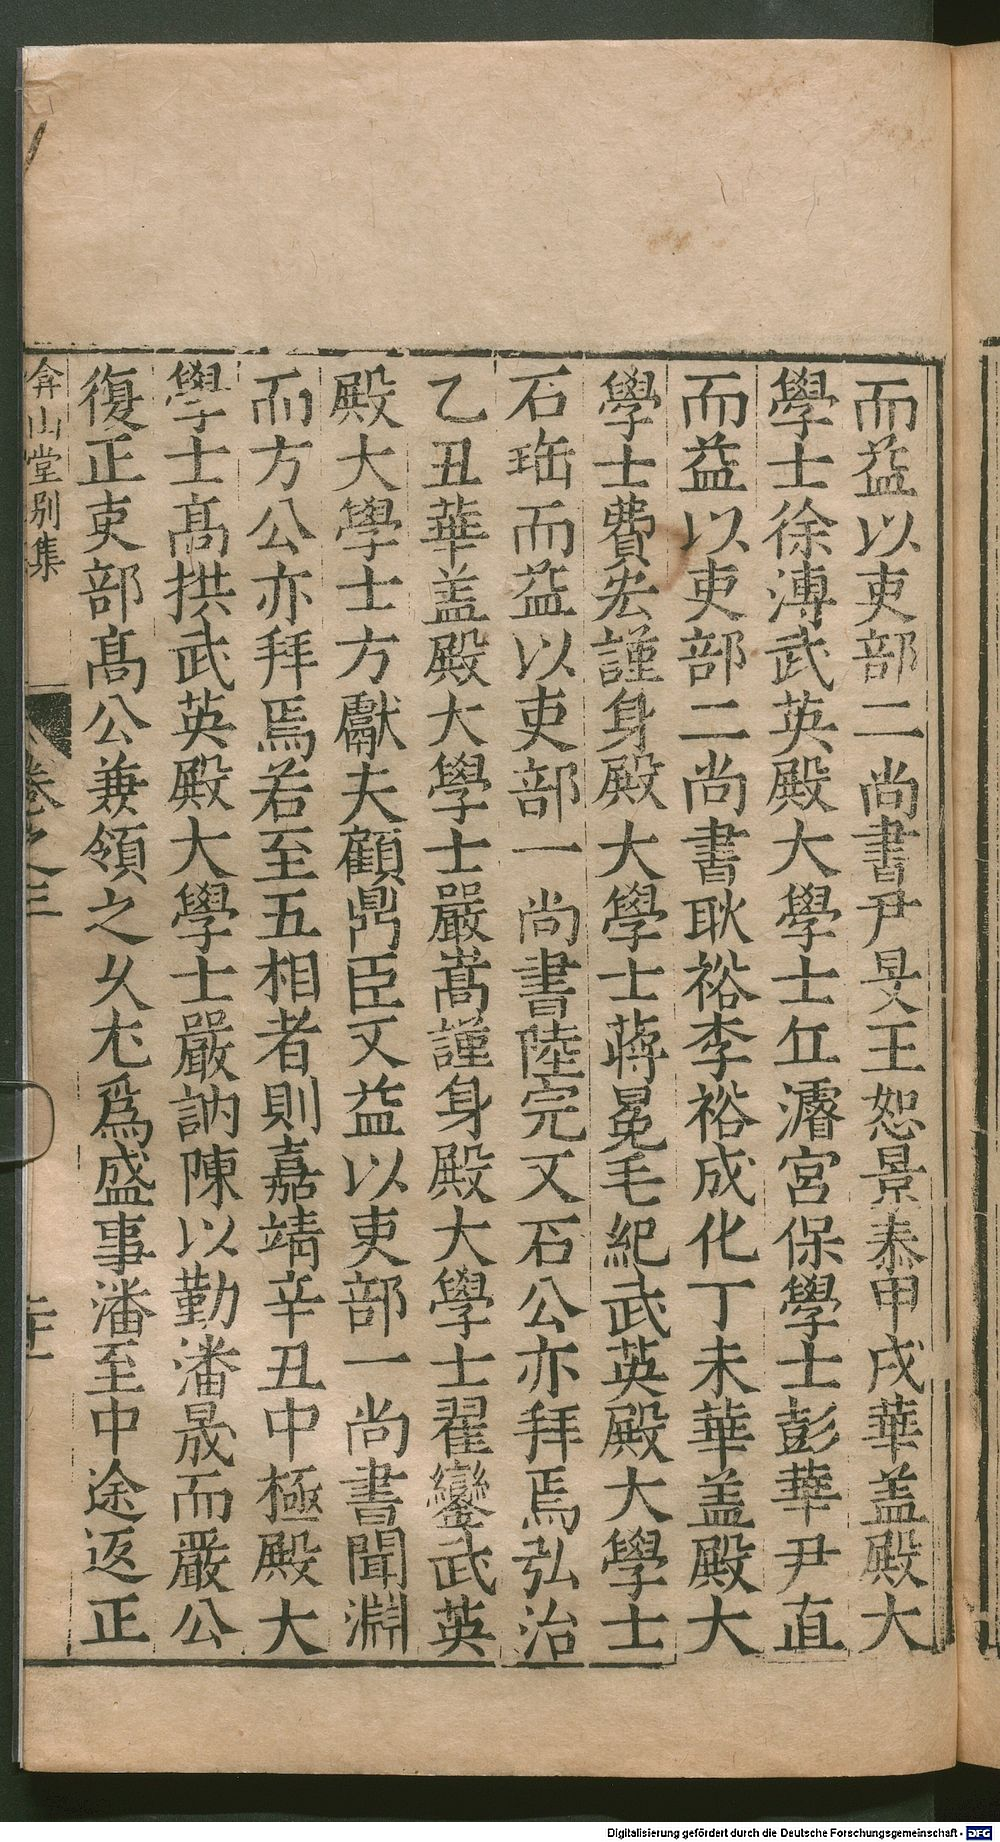 而益以吏部二尚書尹旻王恕景泰甲戌華盖殿大
學士徐溥武英殿大學士丘濬宮保學士彭華尹直
而益以吏部二尚書耿裕李裕成化丁未華盖殿大
學士費宏謹身殿大學士蔣冕毛紀武英殿大學士
石珤而益以吏部一尚書陸完又石公亦拜焉弘治
乙丑華盖殿大學士嚴嵩謹身殿大學士翟鑾武英
殿大學士方獻夫顧鼎臣又益以吏部一尚書聞淵
而方公亦拜焉若至五相者則嘉靖辛丑中極殿大
學士髙拱武英殿大學士嚴訥陳以勤潘晟而嚴公
復正吏部髙公兼領之乆尤爲盛事潘至中途返正
弇山堂别集
卷之三
二十一
Digitalisierung gefördert durch die Deutsche Forschungsgemeinschaft - DFG